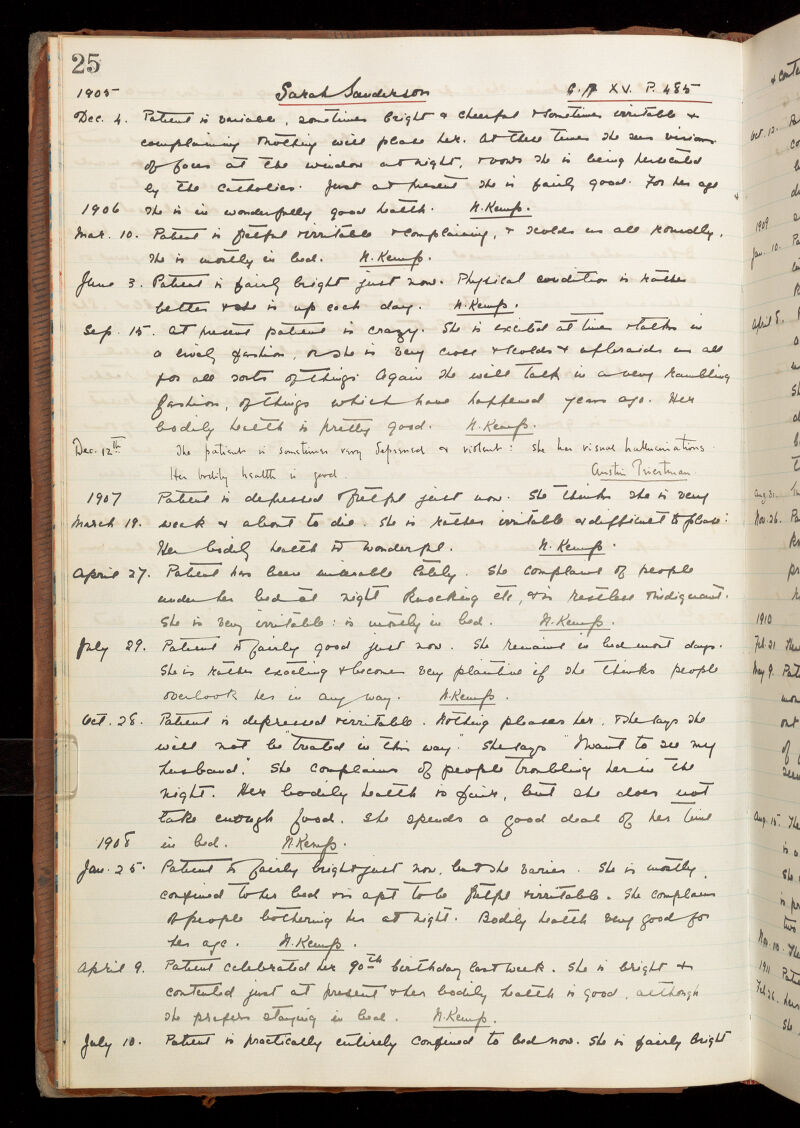 25
1905 Sarah Sanderson C.B XV. P. 485
Dec. 4. Patient is variable, sometimes bright & cheerful & sometimes irritable &
complaining & nothing will please her. At these times she sees visions
of faces at the window at night, & vows she is being persecuted
by the Catholics. Just at present she is fairly good. For her age
1906 she is in wonderfully good health. N. Kemp.
Mar. 10. Patient is fretful & irritable & complaining, & scolds us all roundly.
She is mostly in bed. N. Kemp.
June 3. Patient is fairly bright just now. Physical condition is rather
better & she is up each day. N. Kemp.
Sep. 15. At present patient is crazy. She is excited at times & talks in
a lively fashion, or she is very cross & scolds & upbraids us all
for all sorts of things. Again she will talk in a very rambling
fashion, of things which have happened years ago. Her
bodily health is pretty good. N. Kemp.
Dec. 12th The patient is sometimes very depressed & violent: she has visual hallucinations.
Her bodily health is good. Austin Priestman.
1907 Patient is depressed & fretful just now. She thinks she is very
March 19. weak & about to die. She is rather irritable & difficult to please:
Her bodily health is wonderful. N. Kemp.
April 27. Patient has been miserable lately. She complains of people
under her bed at night knocking etc, & is restless & indignant.
She is very irritable: is mostly in bed. N. Kemp.
July 29. Patient is fairly good just now. She remains in bed most days.
She is rather exacting & becomes very plaintive if she thinks people
overlook her in any way. N. Kemp.
Oct. 28. Patient is depressed & irritable. Nothing pleases her, & she says she
will not be "treated in this way." She says "I want to see my
husband." She complains of people troubling her in the
night. Her bodily health is fair, but she does not
take enough food. She spends a good deal of her time
1908 in bed. N. Kemp.
Jan. 25. Patient is fairly bright just now, but she varies. She is mostly
confined to her bed & is apt to be fretful & irritable. She complains
of people bothering her at night. Bodily health very good for
her age. N. Kemp.
April 9. Patient celebrated her 90th birthday last week. She is bright &
contented just at present & her bodily health is good, although
she prefers staying in bed. N. Kemp.
July 10. Patient is practically entirely confined to bed now. She is fairly bright
Oct. 12.
1909
Jan. 10.
April 8.
Aug. 31.
Nov. 26.
1910
Feb. 21
May 9.
Aug. 15. The
Nov. 10. The
1911
Feb. 26.
She